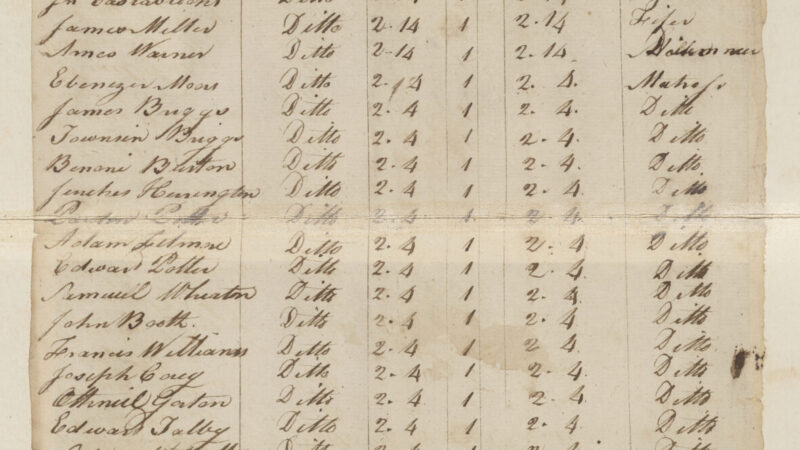 James Miller Ditto 2.14 1 2.14 Fifer
Amos Warner Ditto 2-14 1 2.14
Ebenezer Moss Ditto 2.4 1 2.4. Matross
James Briggs Ditto 2.4 1 2.4. Ditto
Townsin Briggs Ditto 2.4 1 2.4. Ditto
Benoni Burton Ditto 2.4 1 2.4. Ditto
Jenckes Herrington Ditto 2.4 1 2.4. Ditto
Potter Ditto 2.4 1 2.4. Ditto
Adam Ditto 2.4 1 2.4 Ditto
Edward Potter Ditto 2.4 1 2.4. Ditto
Samuel Wheaton Ditto 2.4 1 2.4 Ditto
John Booth. Ditto 2.4 1 2.4 Ditto
Francis Williams Ditto 2.4 1 2.4 Ditto
Joseph Ditto 2.4 1 2 4 Ditto
Othniel Gorton Ditto 2.4 1 2.4. Ditto
Edward Talby Ditto 2.4 1 2.4. Ditto